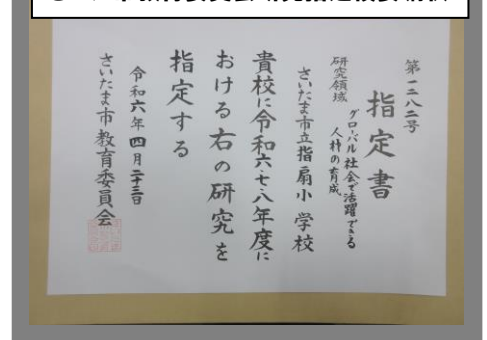 第一二八二号
指定書
研究領域
グローバル社会で活躍できる
人材の育成
さいたま市立指扇小学校
貴校に令和六・七・八年度に
おける右の研究を
指定する
令和六年四月二十三日
さいたま市教育委員会